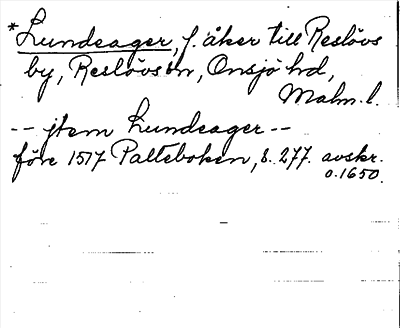 *Lundsager, f. åker till Reslövs
by, Reslövs sn, Onsjö hd,
Malm. l.
-- jtem Lundsager --
före 1517 Palteboken, s. 277. avskr.
o. 1650.